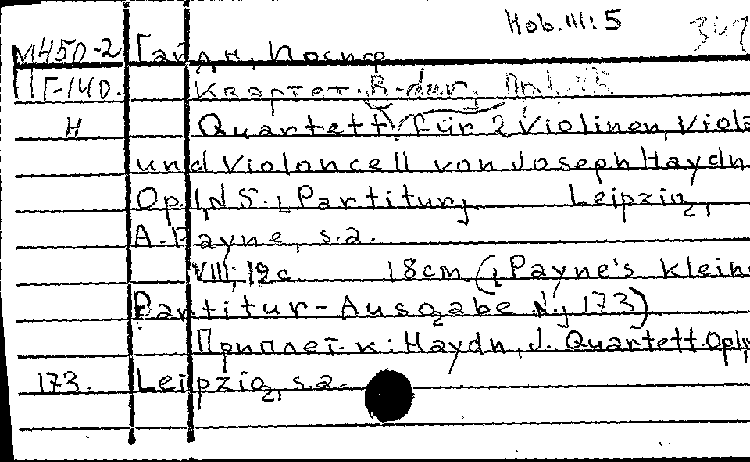 Hob.III:5 342
М450-2 Гайдн, Иосиф
П Г-140. Квартет. B-dur, Op.1,
H Quartett für 2 Violinen, Viola
und Violoncell von Joseph Haydn
Op.1, N5.; Partitur. Leipzig,
A. Payne, s.a.
VIII; 12 c. 18cm (Payne's kleine
Partitur-Ausgabe N. 173)
Приплет. к: Haydn, J. Quartett Op1,
173. Leipzig, s.a.